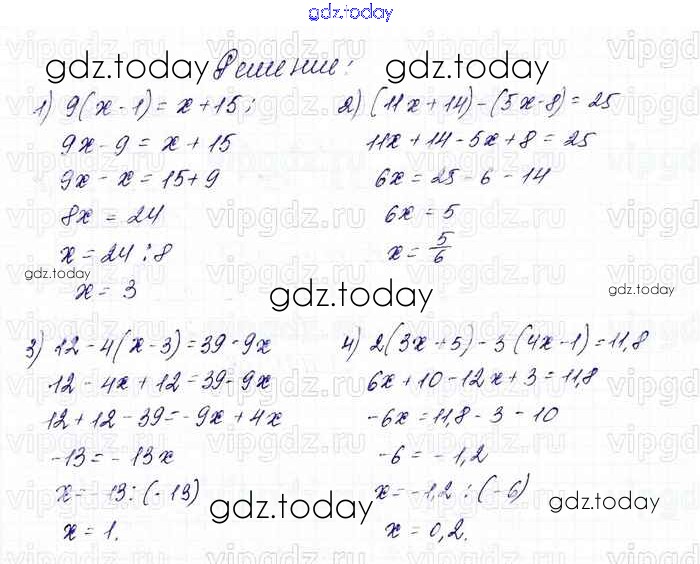 gdz.today
Решение:
1) 9(x-1) = x+15;
9x - 9 = x + 15
9x - x = 15+9
8x = 24
x = 24 : 8
x = 3
2) (11x+14)-(5x-8) = 25
11x+14-5x+8 = 25
6x = 25 - 6 - 14
6x = 5
x = 5/6
3) 12-4(x-3) = 39-9x
12-4x+12 = 39-9x
12+12-39 = -9x+4x
-13 = -13x
x = -13 : (-13)
x = 1.
4) 2(3x+5)-3(4x-1) = 11,8
6x+10-12x+3 = 11,8
-6x = 11,8-3-10
-6 = -1,2
x = -1,2 : (-6)
x = 0,2.
gdz.today
gdz.today
gdz.today
gdz.today
gdz.today
gdz.today
gdz.today
vipgdz.ru